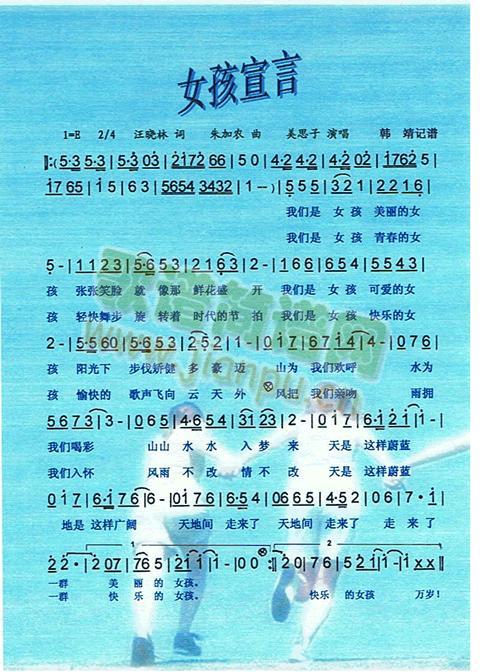 女孩宣言
1=E 2/4 汪晓林 词 朱加农 曲 美思子 演唱 韩 靖记谱
‖:(5·3 5·3|5·3 03|2172 66|5 0|4·2 4·2|4·2 02|1762 5|
1765|15 63|5654 3432|1 --)|5 5 5|3 2 1|2 2 1 6|
我们是 女 孩 美丽的女
我们是 女 孩 青春的女
5 -|1 1 2 3|5·6 5 3|2 1 6 3|2 -|1 6 6|6 5 4|5 5 4 3|
孩 张张笑脸 就 像那 鲜花盛 开 我们是 女 孩 可爱的女
孩 轻快舞步 旋 转着 时代的节 拍 我们是 女 孩 快乐的女
2 -|5·5 60|5·6 53|2 1 2 3|2 -|0 1 7|6 7 1 4|4 -|0 7 6|
孩 阳光下 步伐矫健 多 豪 迈 山为 我们欢呼 水为
孩 愉快的 歌声飞向 云 天 外 风把 我们亲吻 雨拥
5 6 7 3|3 -|0 6 5|4·6 5 4|3 1 2 3|2 -|0 1 7|6·1 2 1|1 -|
我们喝彩 山山 水 水 入 梦 来 天是 这样蔚蓝
我们入怀 风雨 不 改 情 不 改 天是 这样蔚蓝
0 1 7|6·1 7 6|6 -|0 1 7 6|6·5 4|0 6 6 5|4·5 2|0 6 7·1|
地是 这样广阔 天地间 走来了 天地间 走来了 走 来 了
2 2·|2 0 7|7 6 5|2 1|1 -|0 0 :‖2 0 1|1 2|1 -|1 x x‖
一群 美 丽 的 女孩。
一群 快 乐 的 女孩。 快乐 的 女孩 万岁！